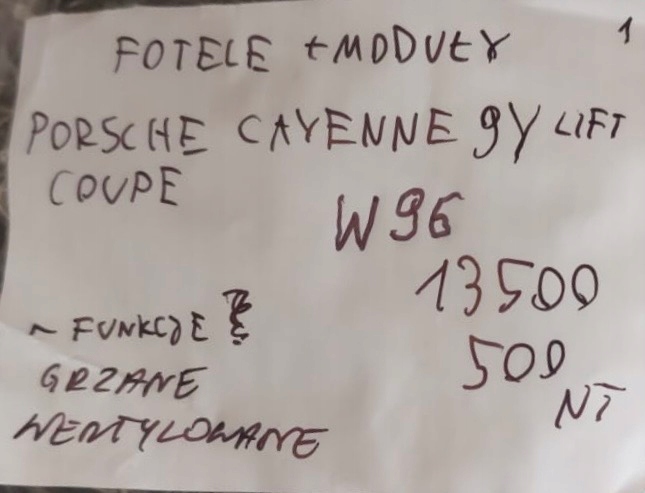 1
FOTELE + MODUŁY
PORSCHE CAYENNE 9Y LIFT
COUPE
W96
13500
~ FUNKCJE
500
GRZANE
NT
WENTYLOWANE